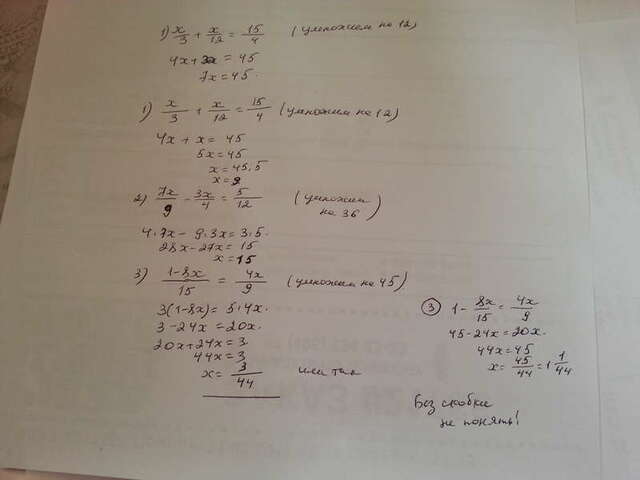 1) x/3 + x/12 = 15/4 (умножим на 12)
4x + 3x = 45
7x = 45.
1) x/3 + x/12 = 15/4 (умножим на 12)
4x + x = 45
5x = 45
x = 45.5
x = 9
2) 7x/9 - 3x/4 = 5/12 (умножим на 36)
4·7x - 9·3x = 3·5.
28x - 27x = 15
x = 15
3) 1-8x/15 = 4x/9 (умножим на 45)
3(1-8x) = 5·4x.
3 - 24x = 20x.
20x + 24x = 3.
44x = 3.
x = 3/44 или так
③ 1 - 8x/15 = 4x/9
45 - 24x = 20x.
44x = 45
x = 45/44 = 1 1/44
Без скобки
не понять!